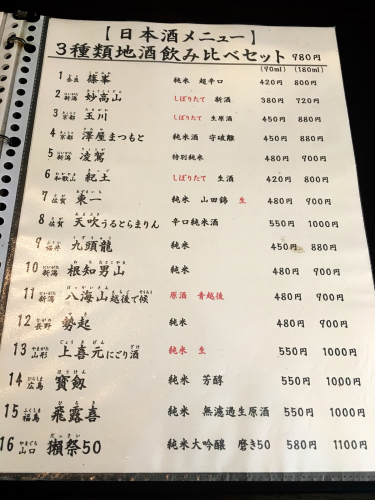 【日本酒メニュー】
3種類地酒飲み比べセット 980円
(90ml) (180ml)
1 奈良 篠峯 純米 超辛口 420円 800円
2 新潟 妙高山 しぼりたて 新酒 380円 720円
3 京都 玉川 しぼりたて 生原酒 450円 880円
4 京都 澤屋まつもと 純米酒 守破離 450円 880円
5 新潟 凌駕 特別純米 480円 900円
6 和歌山 紀土 しぼりたて 生酒 420円 800円
7 佐賀 東一 純米 山田錦 生 480円 900円
8 佐賀 天吹うるとらまりん 辛口純米酒 550円 1000円
9 福井 九頭龍 純米 450円 880円
10 新潟 根知男山 純米 480円 900円
11 新潟 八海山越後で候 原酒 青越後 480円 900円
12 長野 勢起 純米 480円 900円
13 山形 上喜元にごり酒 純米 生 550円 1000円
14 広島 寶剱 純米 芳醇 550円 1000円
15 福島 飛露喜 純米 無濾過生原酒 550円 1000円
16 山口 獺祭50 純米大吟醸 磨き50 580円 1100円